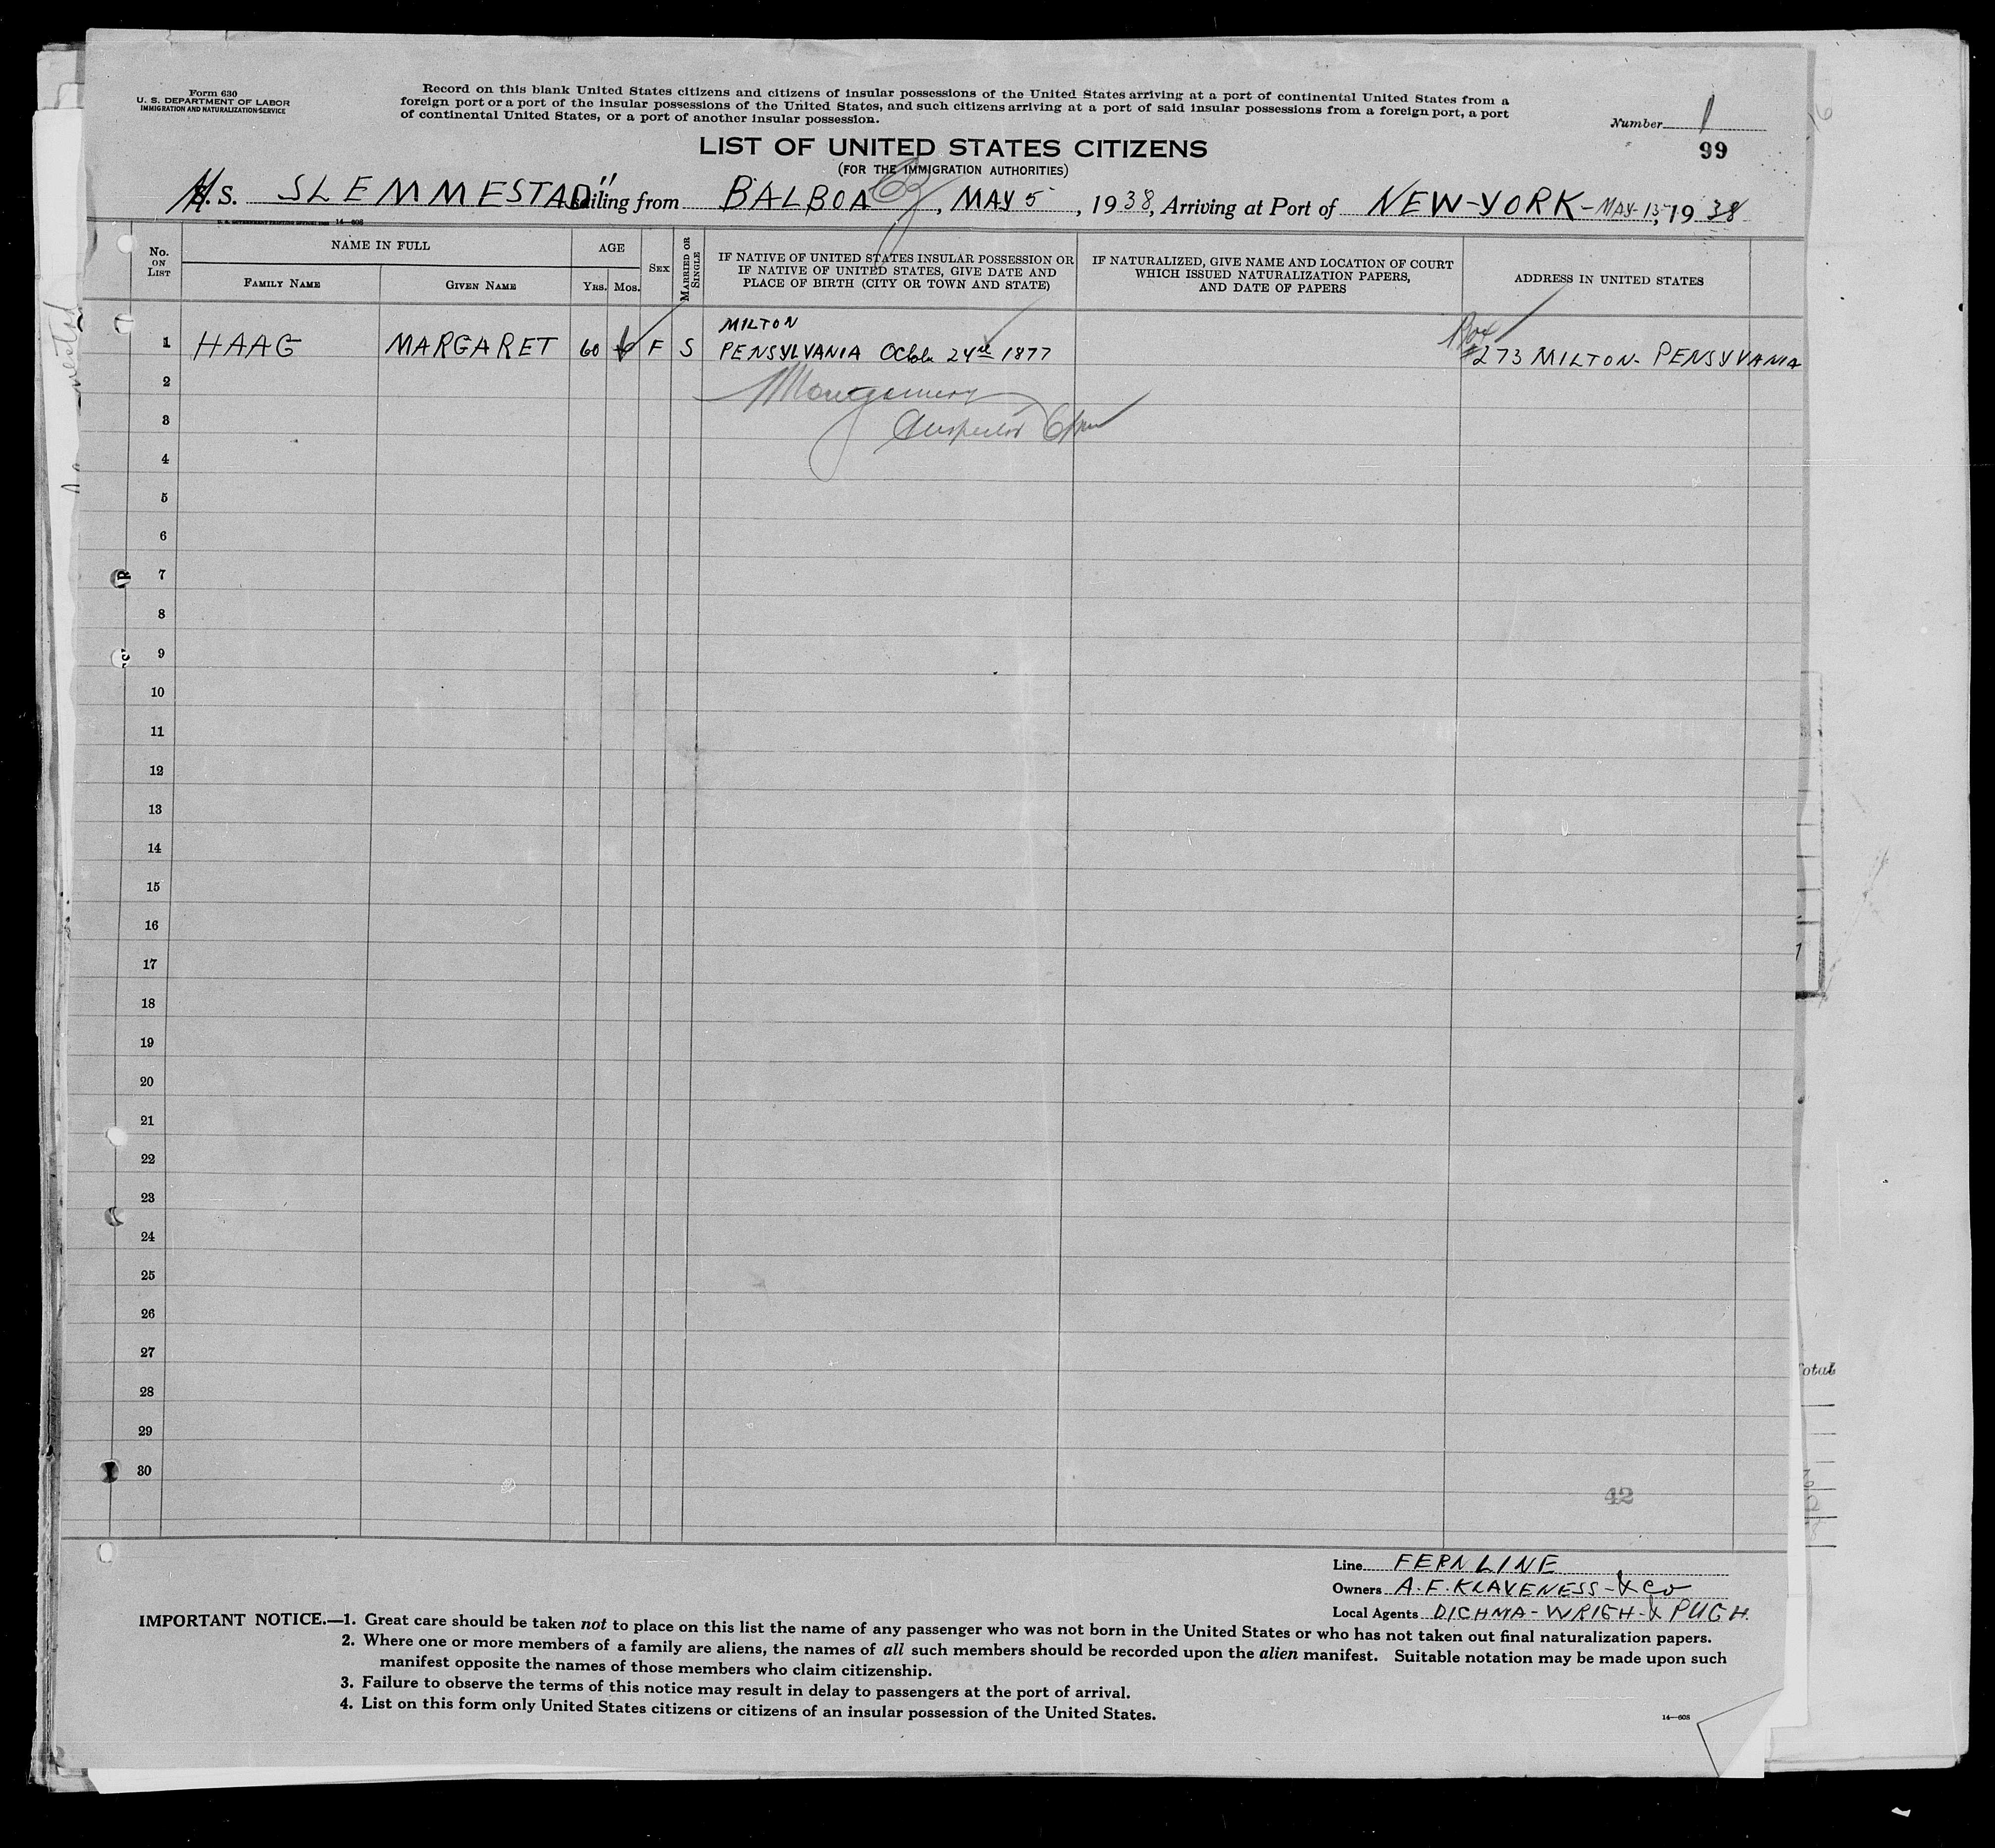 Form 630
U. S. DEPARTMENT OF LABOR
IMMIGRATION AND NATURALIZATION SERVICE
Record on this blank United States citizens and citizens of insular possessions of the United States arriving at a port of continental United States from a
foreign port or a port of the insular possessions of the United States, and such citizens arriving at a port of said insular possessions from a foreign port, a port
of continental United States, or a port of another insular possession.
Number 1
99
LIST OF UNITED STATES CITIZENS
(FOR THE IMMIGRATION AUTHORITIES)
M. S. SLEMMESTAD" sailing from BALBOA CZ, MAY 5, 1938, Arriving at Port of NEW-YORK-MAY-13, 1938
14—608
No. ON LIST
NAME IN FULL
FAMILY NAME
GIVEN NAME
AGE
YRS.
MOS.
SEX
MARRIED OR SINGLE
IF NATIVE OF UNITED STATES INSULAR POSSESSION OR
IF NATIVE OF UNITED STATES, GIVE DATE AND
PLACE OF BIRTH (CITY OR TOWN AND STATE)
IF NATURALIZED, GIVE NAME AND LOCATION OF COURT
WHICH ISSUED NATURALIZATION PAPERS,
AND DATE OF PAPERS
ADDRESS IN UNITED STATES
MILTON
Box
1 HAAG MARGARET 60 F S PENSYLVANIA Octobr 24th 1877 #273 MILTON- PENSYVANIA
2 Montgomery
3 Inspector
4
5
6
7
8
9
10
11
12
13
14
15
16
17
18
19
20
21
22
23
24
25
26
27
28
29
30
42
otal
Line FERN LINE
Owners A.F. KLAVENESS-& Co
Local Agents DICHMA-WRIGH-& PUGH.
IMPORTANT NOTICE.—1. Great care should be taken not to place on this list the name of any passenger who was not born in the United States or who has not taken out final naturalization papers.
2. Where one or more members of a family are aliens, the names of all such members should be recorded upon the alien manifest. Suitable notation may be made upon such
manifest opposite the names of those members who claim citizenship.
3. Failure to observe the terms of this notice may result in delay to passengers at the port of arrival.
4. List on this form only United States citizens or citizens of an insular possession of the United States.
14—608